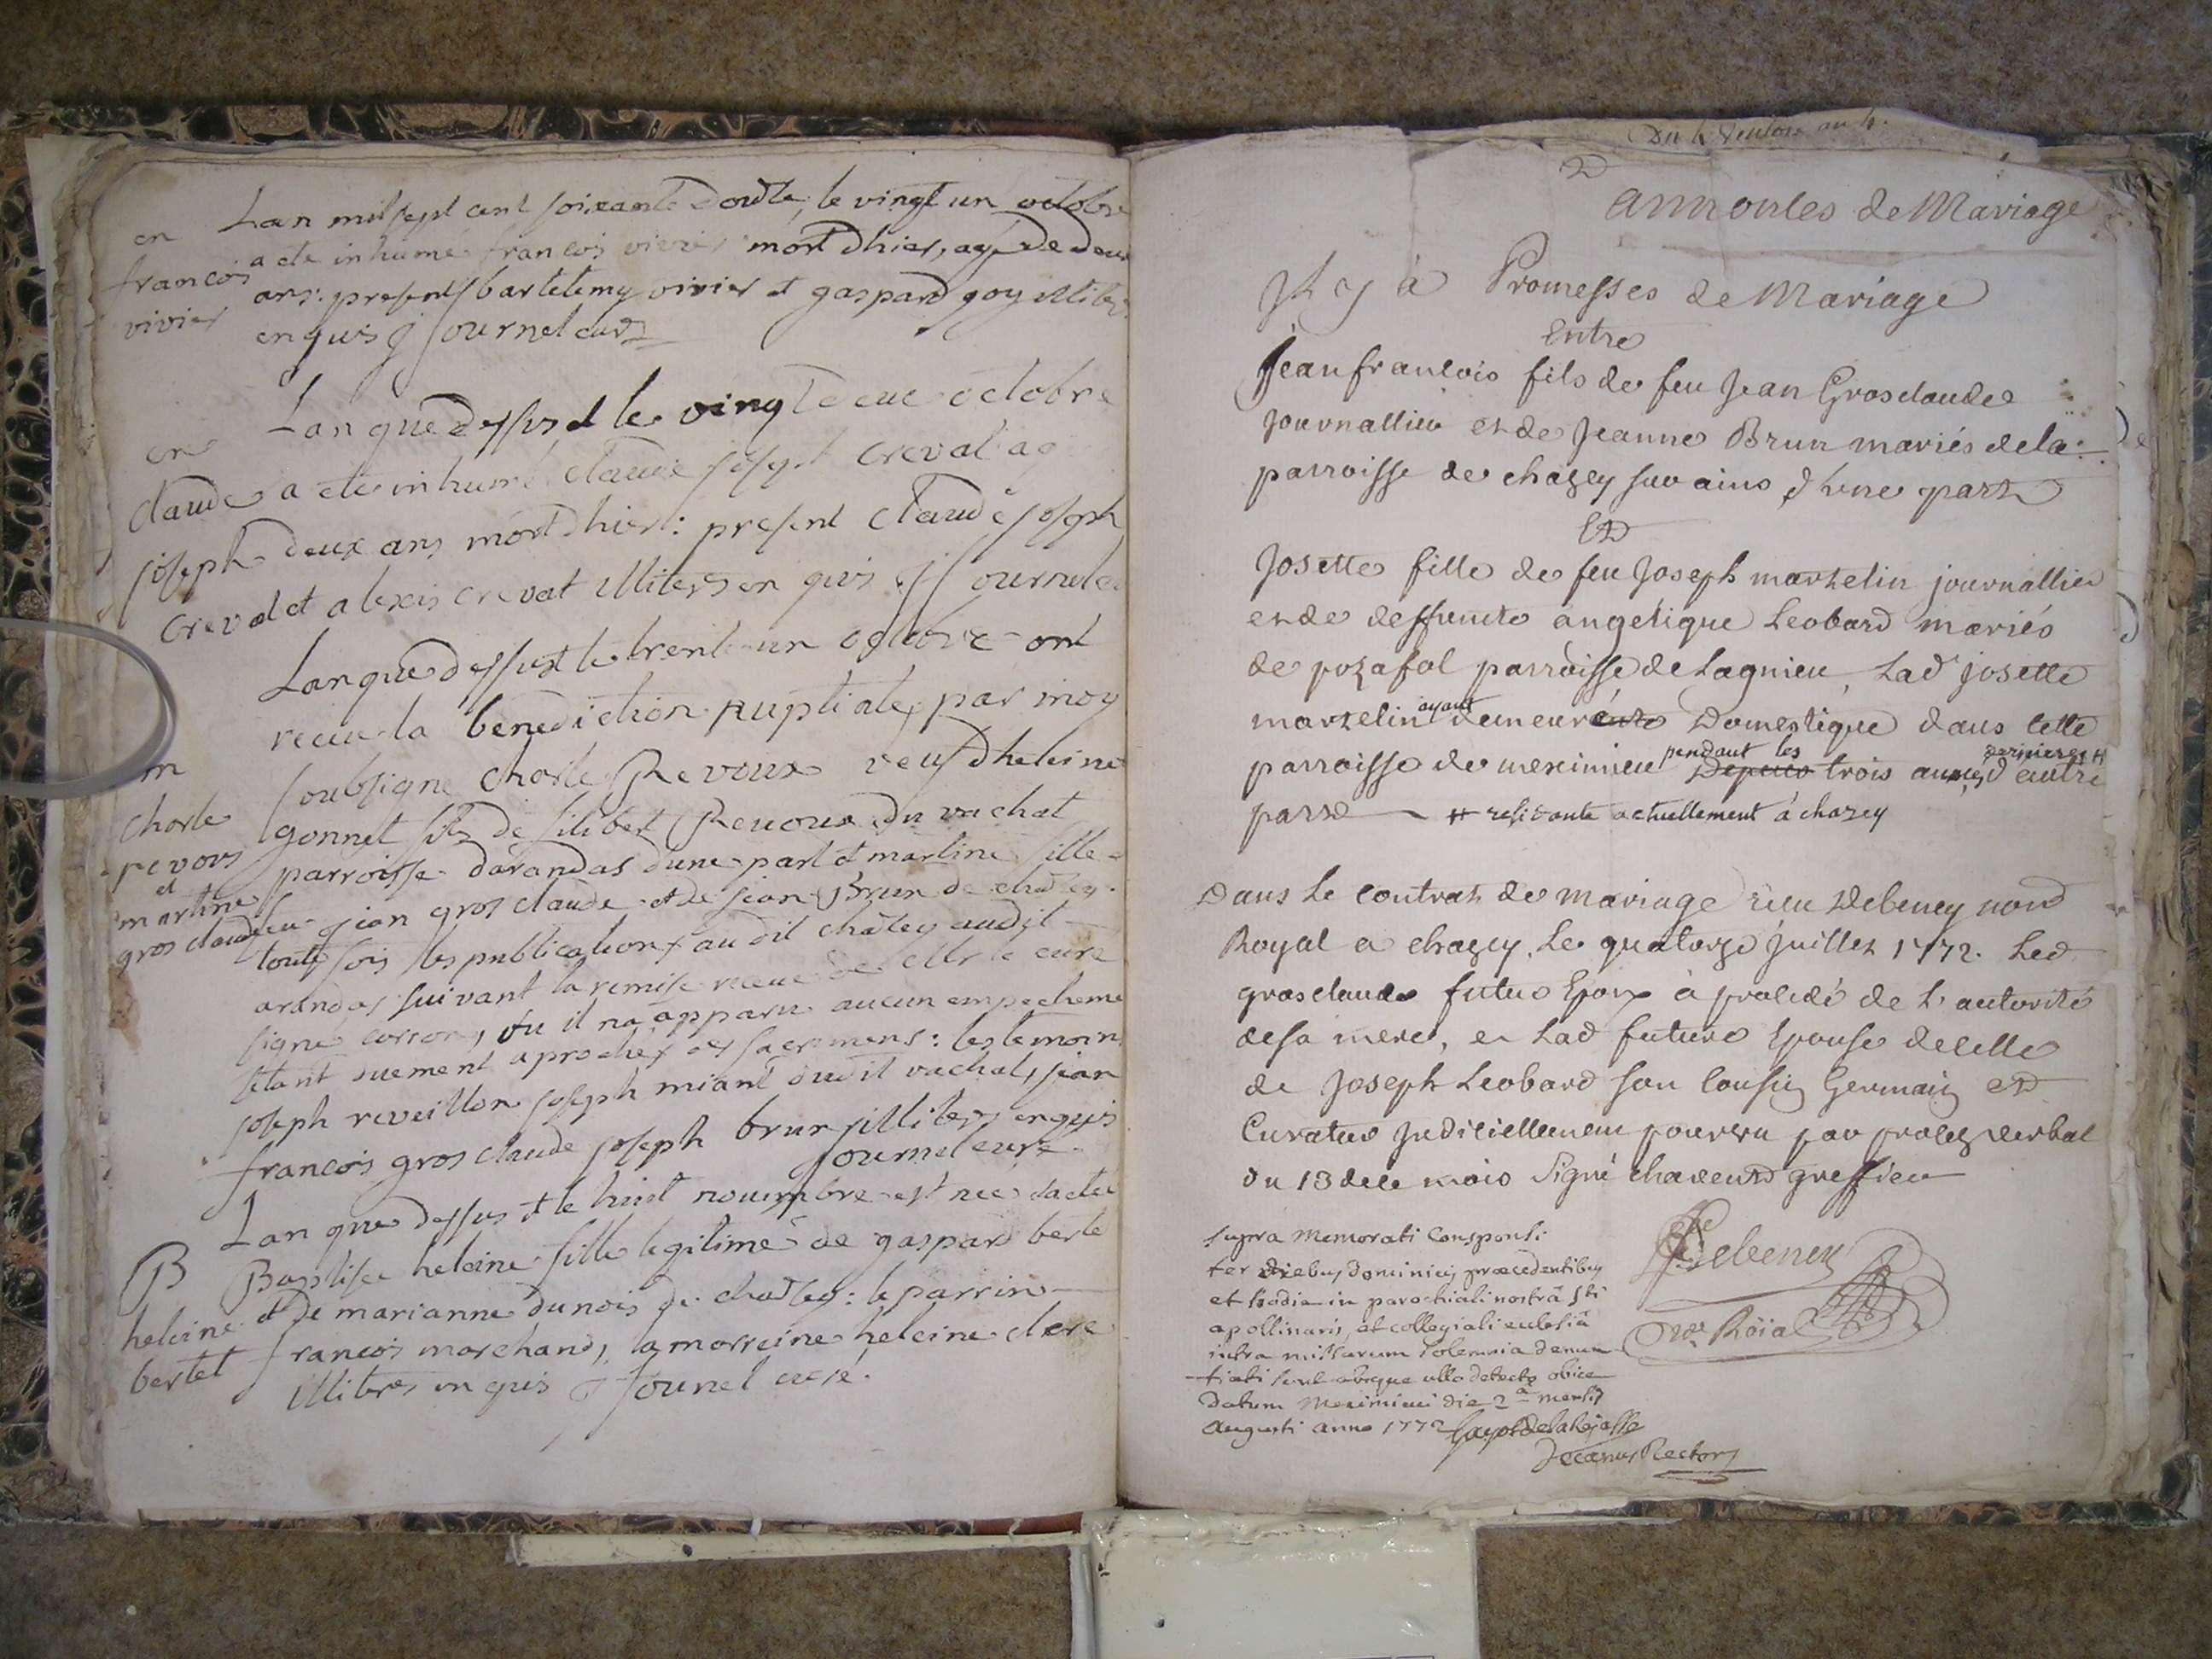 Lan mil sept cent soixante douze, le vingt un octobre
en
a ete inhumé francois vivier mort dhier, agé de deux
francois
ans: presents bartelemy vivier et gaspard goy illiters
vivier
enquis j journel curé
Lan que dessus et le vingt deux octobre
en
claude a ete inhumé claude joseph creval ag
joseph deux ans mort hier: present claude joseph
creval et alexis crevat illiters enquis j journel
Lan que dessus et le trente un octobre ont
receu la benediction nuptiale par moy
m
soubsigne charle Revoux veuf dheleine
charle
gonnet fils de filibert Revoux du vachat
revoux
parroisse darandas dune part et martine fille
et
martine
feu jean gros claude et de jean Brun de chazey
gros claude
toutefois les publications audit chazey audit
arandas suivant la remise receue de Mr le curé
signé corron, ou il na apparu aucun empecheme
setant duement aprochés des sacremens: les temoin
joseph reveillon joseph miant dudit vachat, jean
francois gros claude joseph brun illiters enquis
journel curé
Lan que dessus et le huit novembre est nee et a ete
B
Baptisee heleine fille legitime de gaspard bertet
heleine
et de marianne dunois de chazey: le parrin
bertet
francois marchand, la marreine heleine clere
illiteres enquis j journel curé.
Du 4 ventose an 4.
annonces de Mariage
Jl y à Promesses de Mariage
Entre
Jean francois fils de feu Jean Grosclaude
Journallier et de Jeanne Brun mariés de la
parroisse de chazey sur ains d'une part
Et
Josette fille de feu Joseph marzelin journallier
et de deffunte angelique Leobard mariés
de pozafol parroisse de Lagnieu, Lad josette
marzelin ayant demeurée Domestique dans cette
parroisse de meximieu pendant les Depuis trois années dernieres # d'autre
part # residante actuellement à chazey
Dans Le contrat de mariage reçu Debeney nore
Royal a chazey. Le quatorze Juillet 1772. Led
grosclaude futur Epoux à procédé de L'autorité
de sa mere, et Lad future Epouse de celle
de Joseph Leobard son Cousin Germain et
Curateur judiciellement pourvu par procez verbal
du 13 de ce mois signé chavent greffier
Debeney
Nre Roial
supra memorati consponsi
ter diebus dominicis præcedentibus
et hodie in parochiali nostrâ Sti
apollinaris, et collegiali ecclesiâ
intra missarum solemnia denun
-tiati sunt absque ullo detecto obice
Datum Meximiaci die 2a mensis
Augusti anno 1772 Guyot de la Rejasse
Decanus Rector